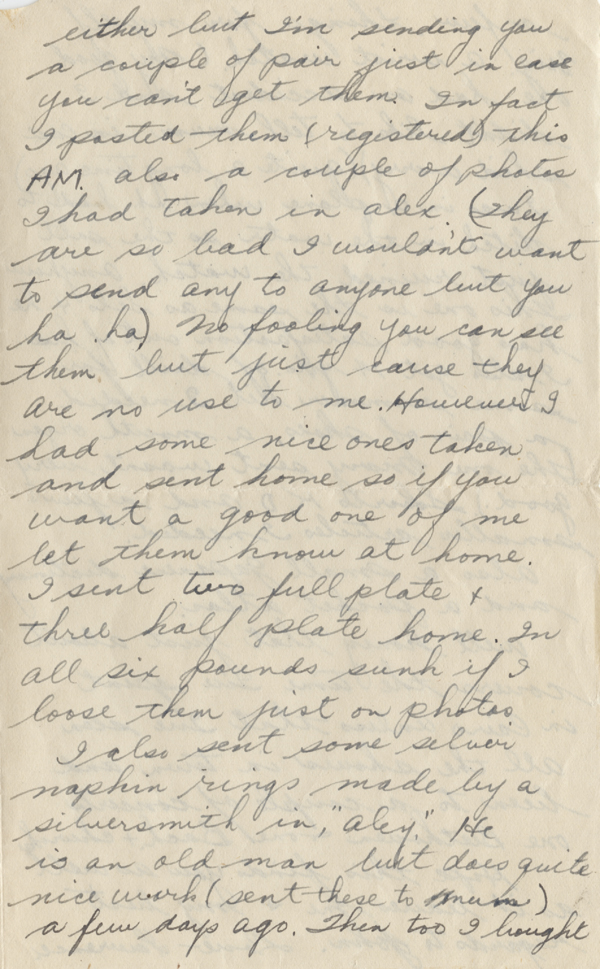 either but I'm sending you
a couple of pair just in case
you can't get them. In fact
I posted them (registered) this
AM. also a couple of photos
I had taken in alex. (They
are so bad I wouldn't want
to send any to anyone but you
ha. ha) No fooling you can see
them but just cause they
are no use to me. However I
had some nice ones taken
and sent home so if you
want a good one of me
let them know at home.
I sent two full plate &
three half plate home. In
all six pounds sunk if I
loose them just on photos
I also sent some silver
napkin rings made by a
silversmith in, "aley." He
is an old man but does quite
nice work (sent these to mum)
a few days ago. Then too I bought